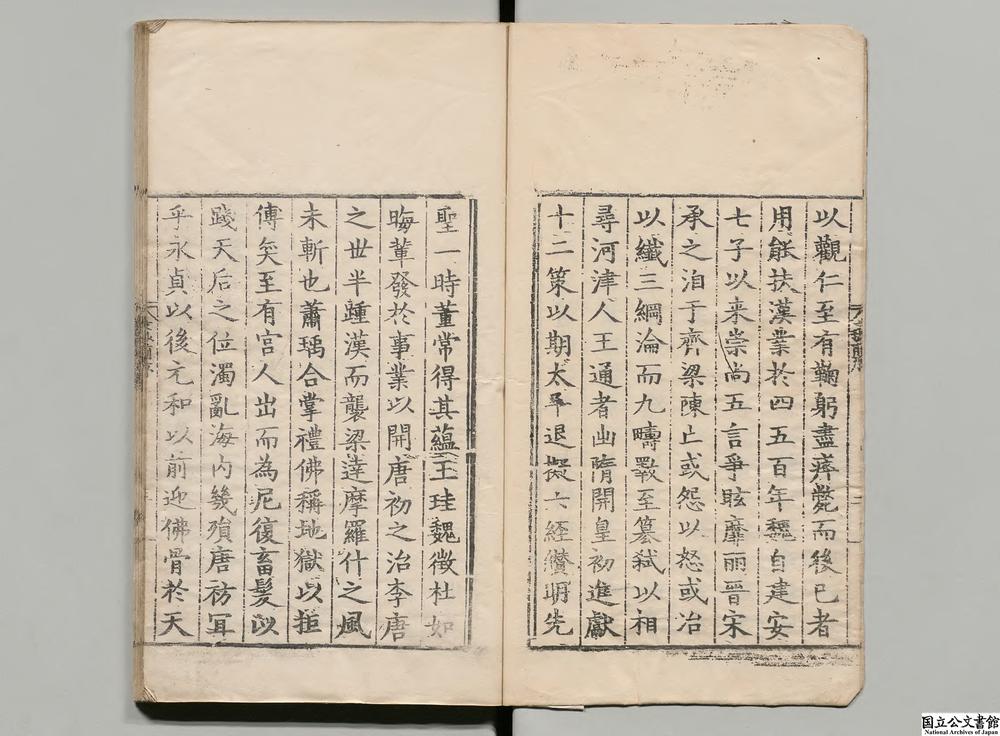 以觀仁至有鞠躬盡瘁斃而後已者
用能扶漢業於四五百年魏自建安
七子以来崇尚五言爭眩靡丽晉宋
承之洎于齊梁陳亡或怨以怒或冶
以纖三綱淪而九疇斁至篡弑以相
尋河津人王通者出隋開皇初進獻
十二策以期太平退擬六經纘明先
聖一時董常得其蘊王珪魏徵杜如
晦輩發於事業以開唐初之治李唐
之世半踵漢而襲梁達摩羅什之風
未斬也蕭瑀合掌禮佛稱地獄以拒
傅奕至有宮人出而為尼復畜髮以
踐天后之位濁亂海内幾殞唐祊冝
乎永貞以後元和以前迎佛骨於天
国立公文書館
National Archives of Japan